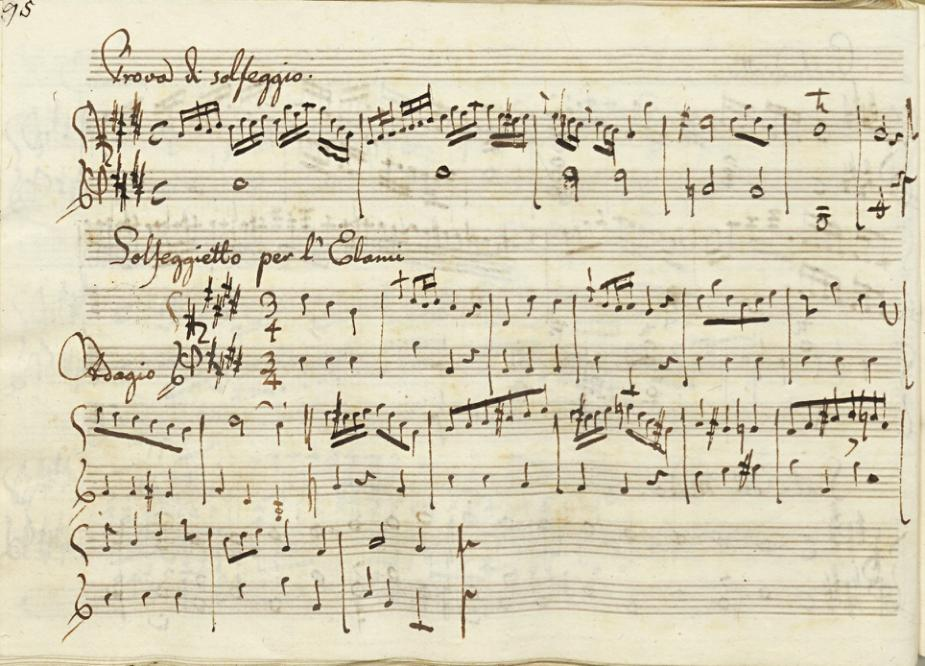 95
Prova di solfeggio.
Solfeggietto per l' Elami
3
4
Adagio
3
4